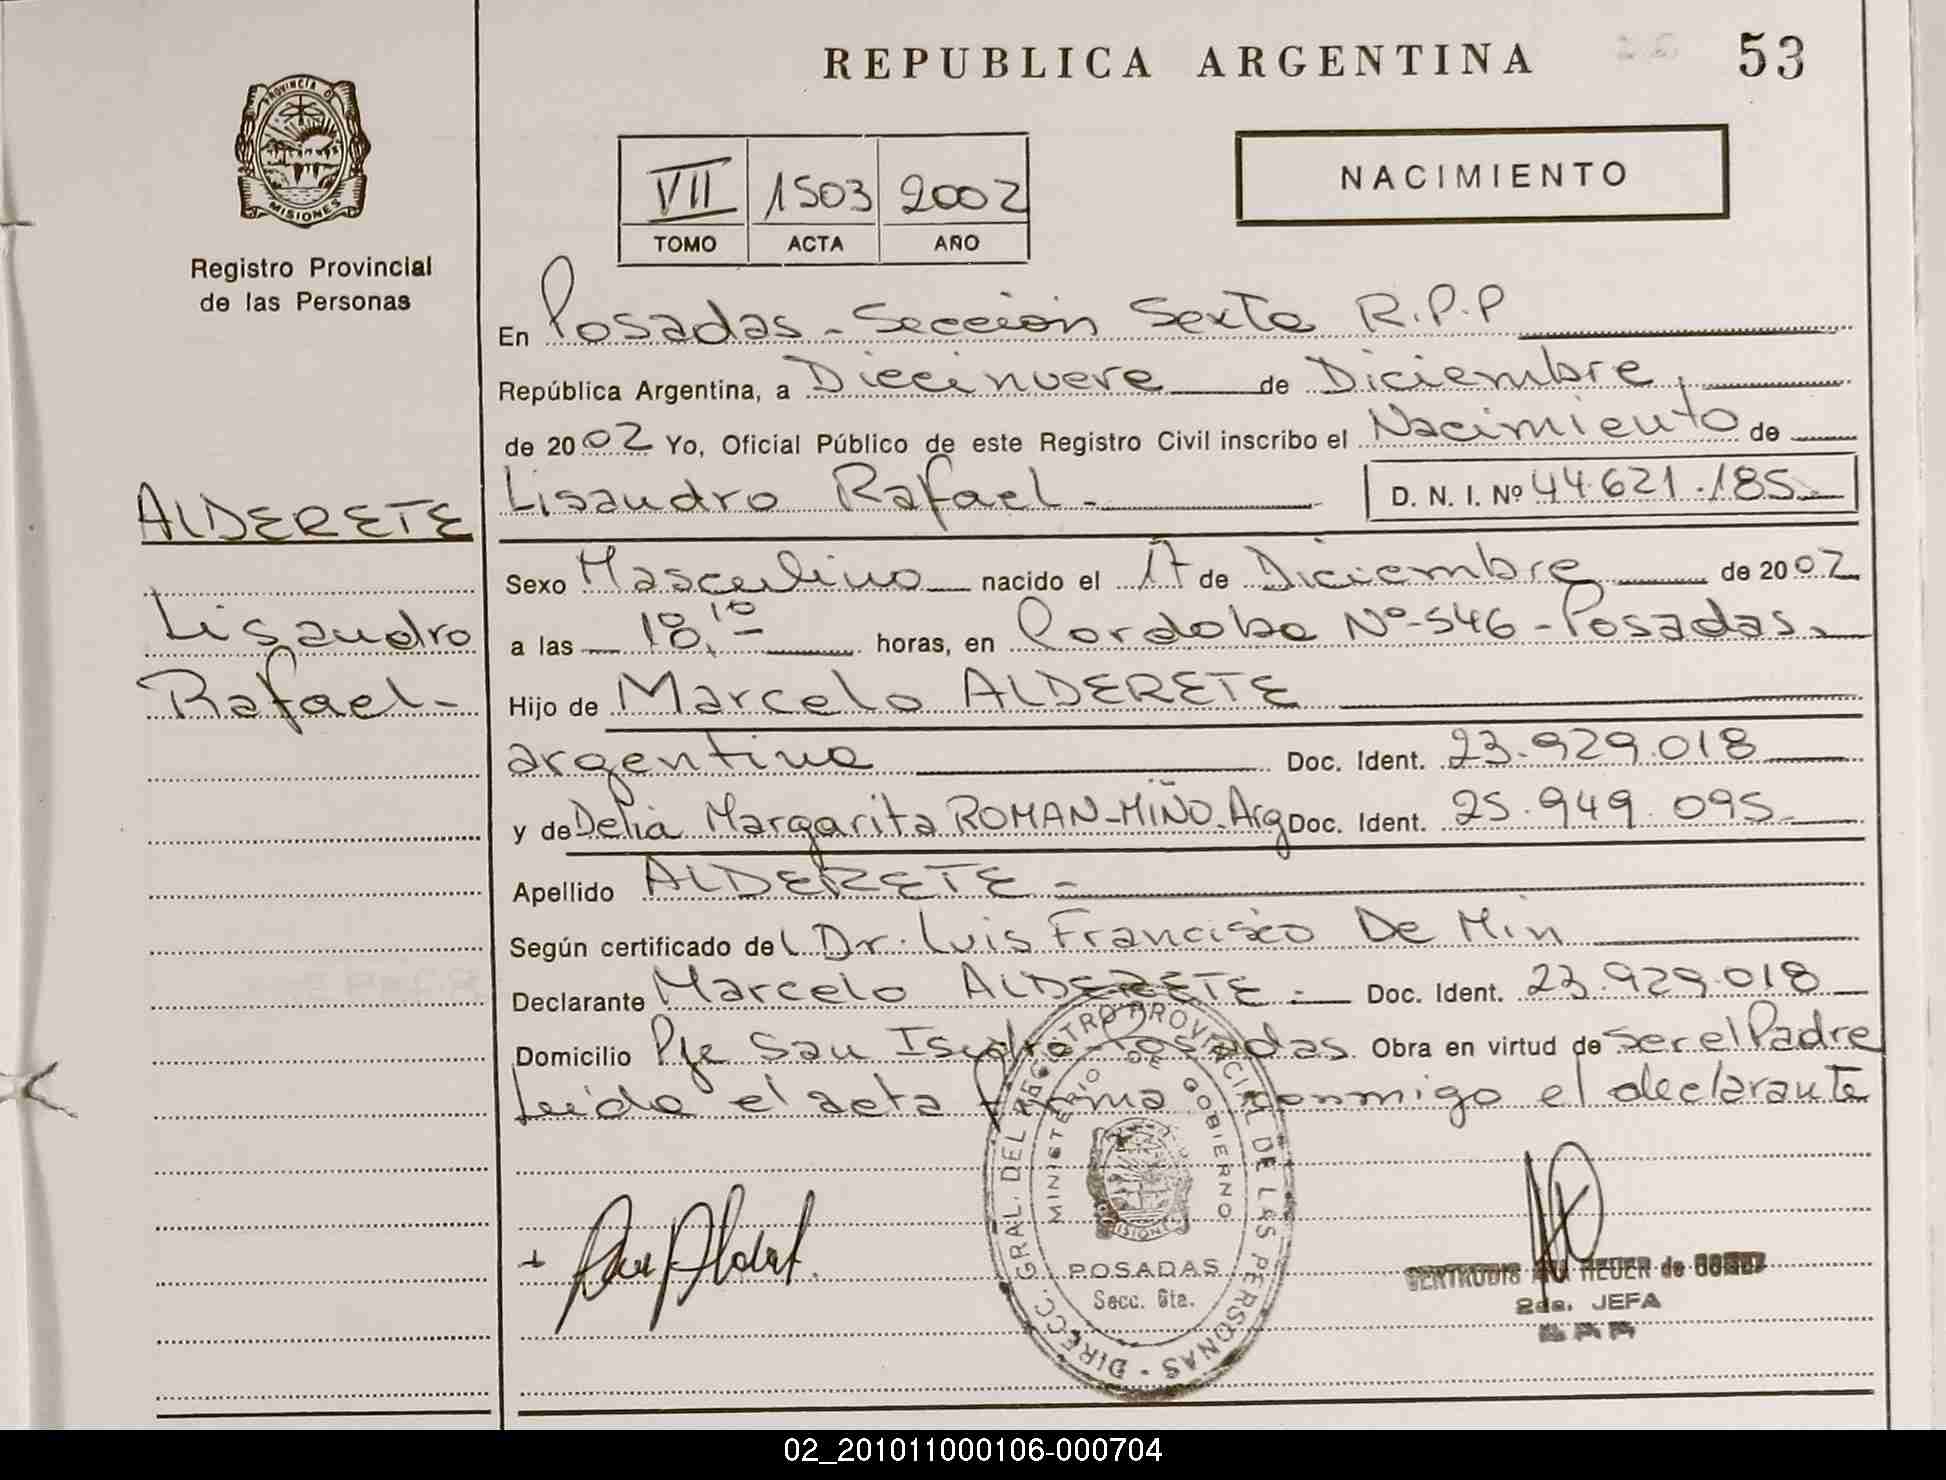 REPUBLICA ARGENTINA 53
PROVINCIA DE
MISIONES
Registro Provincial
de las Personas
NACIMIENTO
VII 1503 2002
TOMO ACTA AÑO
En Posadas - Sección Sexta R.P.P
República Argentina, a Diecinueve de Diciembre,
de 2002 Yo, Oficial Público de este Registro Civil inscribo el Nacimiento de
Lisandro Rafael - D. N. I. Nº 44.621.185
ALDERETE
Lisandro
Rafael -
Sexo Masculino nacido el 17 de Diciembre de 2002
a las 18,10 horas, en Cordoba Nº-546 - Posadas.
Hijo de Marcelo ALDERETE
argentino Doc. Ident. 23.929.018
y de Delia Margarita ROMAN-MIÑO. Arg Doc. Ident. 25.949.095
Apellido ALDERETE -
Según certificado del Dr. Luis Francisco De Min
Declarante Marcelo ALDERETE - Doc. Ident. 23.929.018
Domicilio Pje San Isidro - Posadas. Obra en virtud de ser el Padre
Leida el acta firma conmigo el declarante
DIRECC. GRAL. DEL REGISTRO PROVINCIAL DE LAS PERSONAS
MINISTERIO DE GOBIERNO
MISIONES
POSADAS
Secc. 6ta.
GERTRUDIS HEUER de
2da. JEFA
02_201011000106-000704